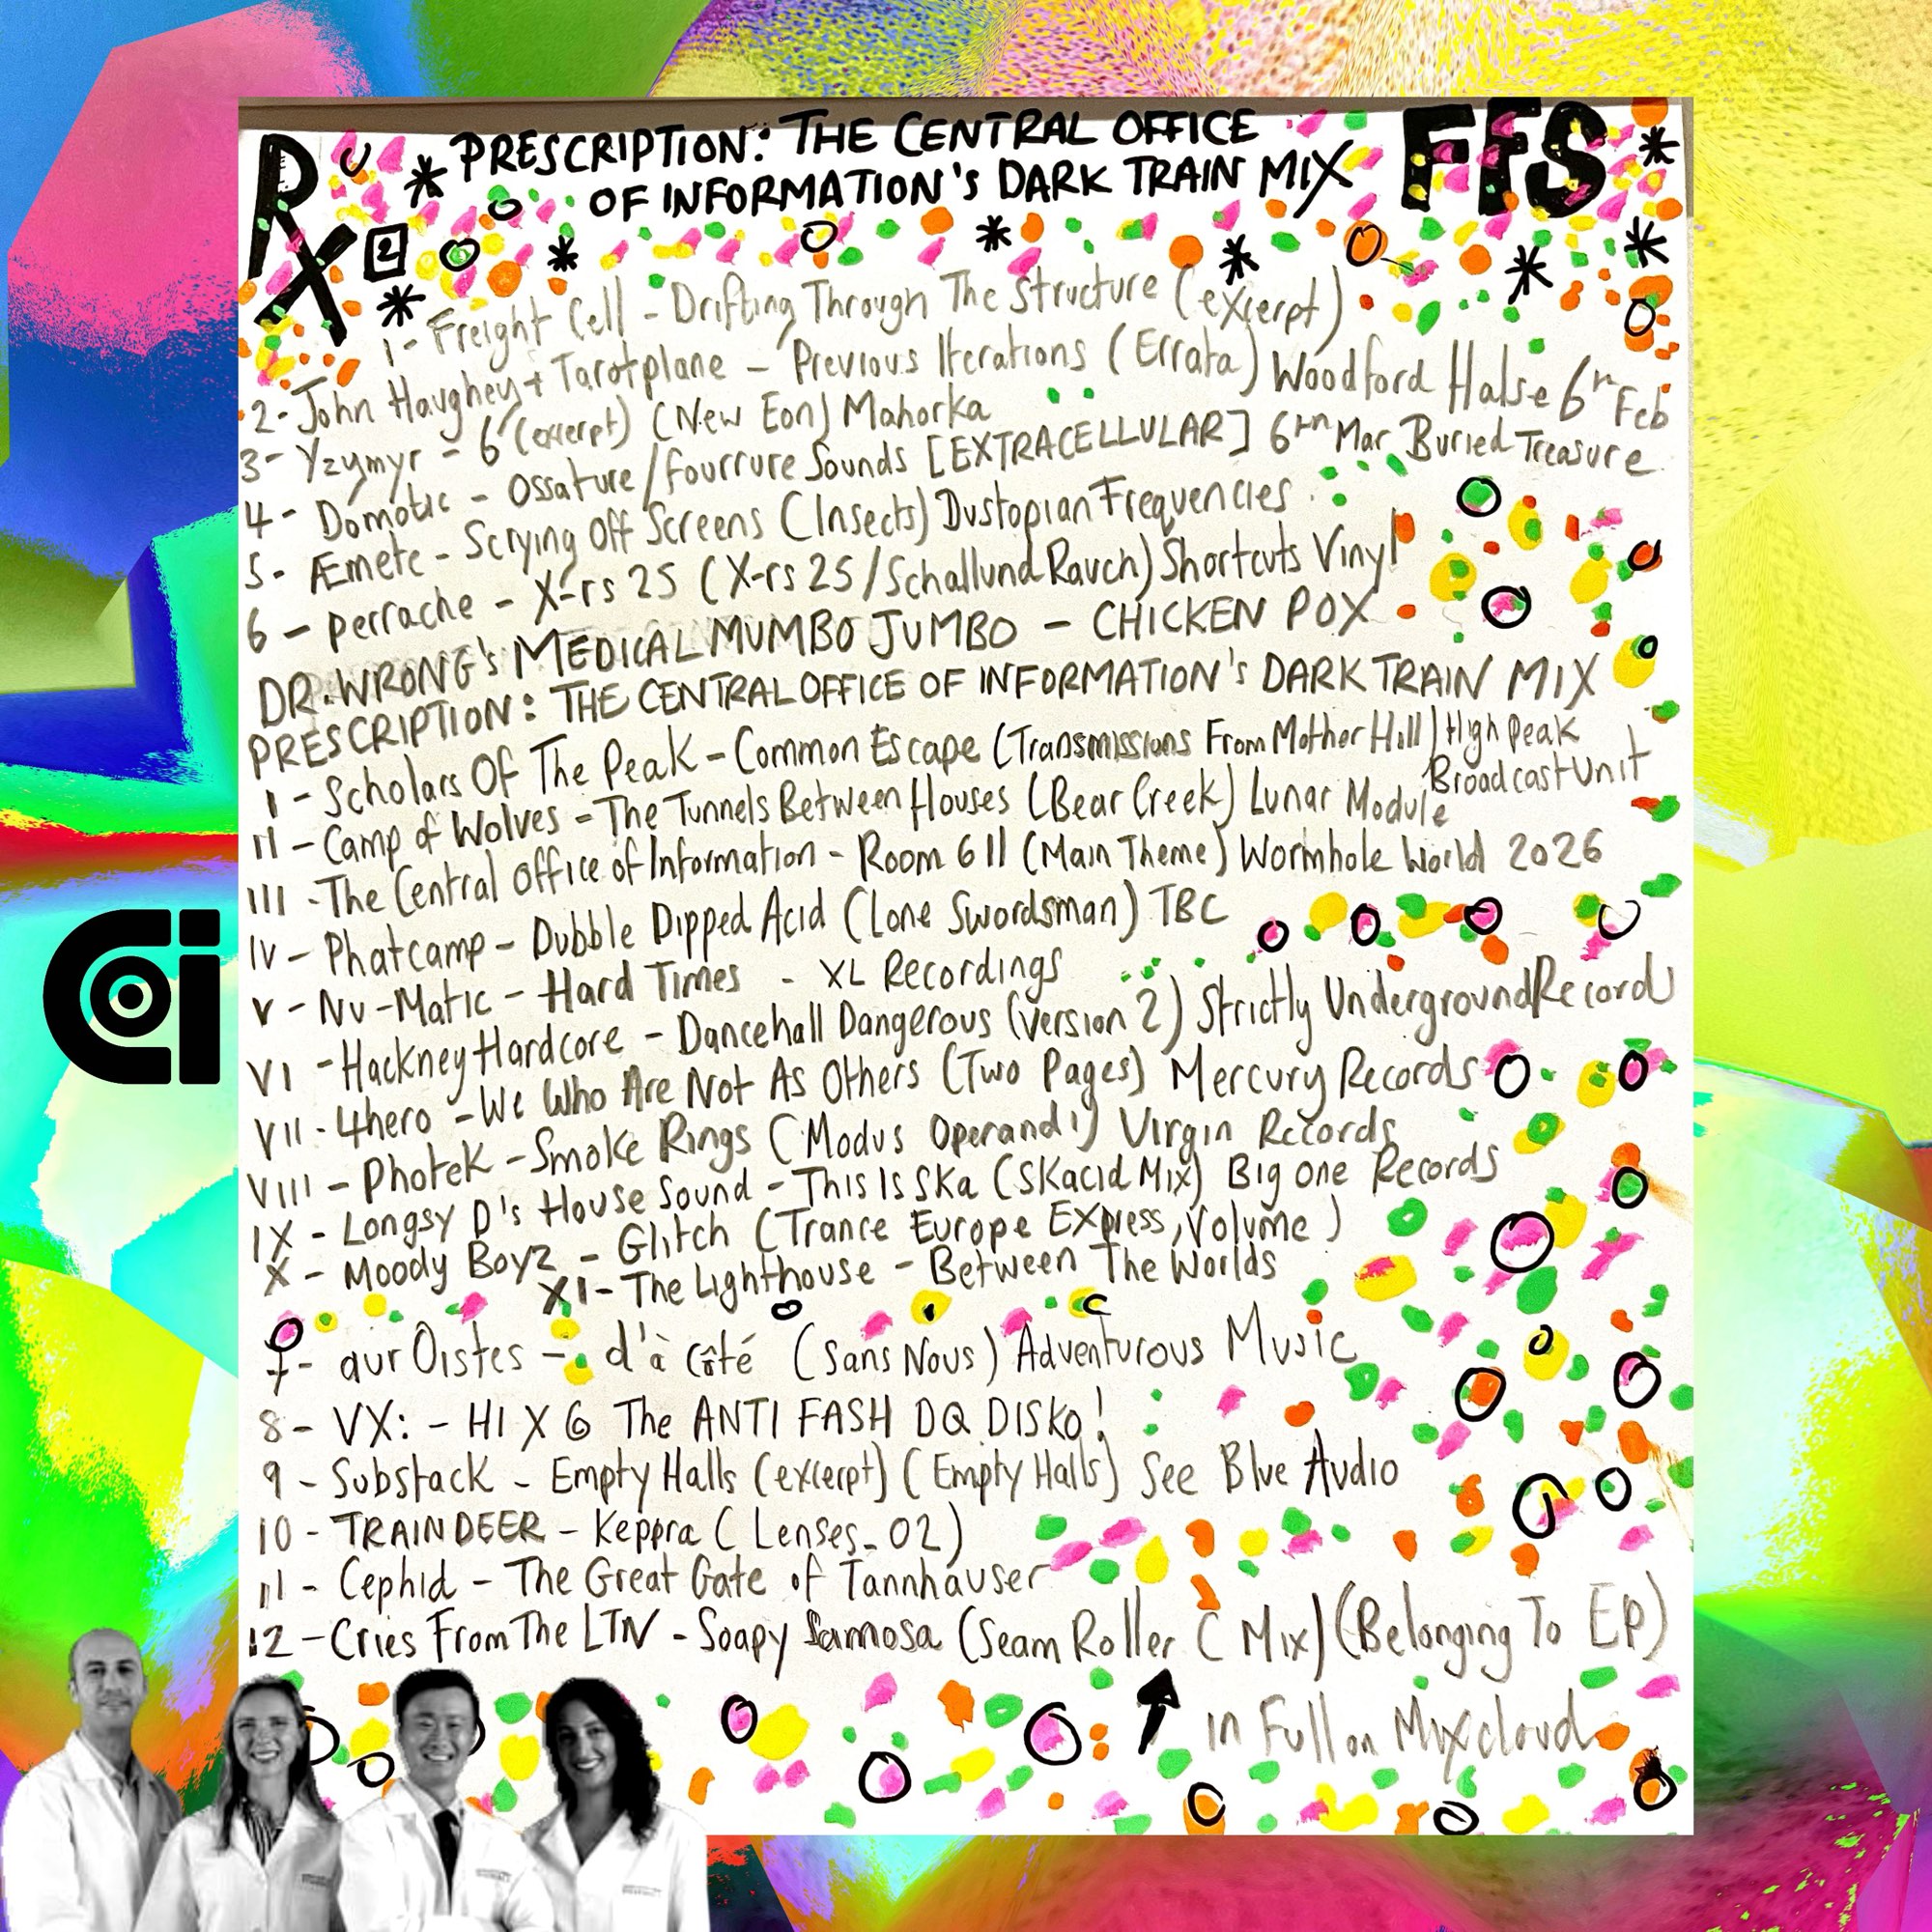 Rx 2
* PRESCRIPTION: THE CENTRAL OFFICE
OF INFORMATION'S DARK TRAIN MIX
FFS
1- Freight Cell - Drifting Through The Structure (excerpt)
2- John Haughey + Tarotplane - Previous Iterations (Errata) Woodford Halse 6th Feb
3- Yzymyr - 6 (excerpt) (New Eon) Mahorka
4- Domotic - Ossature/Fourrure Sounds [EXTRACELLULAR] 6th Mar Buried Treasure
5- Æmete - Scrying Off Screens (Insects) Dustopian Frequencies
6- perrache - X-rs 25 (X-rs 25/Schallundrauch) Shortcuts Vinyl
DR.WRONG's MEDICAL MUMBO JUMBO - CHICKEN POX
PRESCRIPTION: THE CENTRAL OFFICE OF INFORMATION's DARK TRAIN MIX
I - Scholars Of The Peak - Common Escape (Transmissions From Mother Hill) High Peak
Broadcast Unit
II - Camp of Wolves - The Tunnels Between Houses (Bear Creek) Lunar Module
III - The Central Office of Information - Room 611 (Main Theme) Wormhole World 2026
IV - Phatcamp - Dubble Dipped Acid (Lone Swordsman) TBC
V - Nu-Matic - Hard Times - XL Recordings
VI - Hackney Hardcore - Dancehall Dangerous (version 2) Strictly Underground Records
VII - 4hero - We Who Are Not As Others (Two Pages) Mercury Records
VIII - Photek - Smoke Rings (Modus Operandi) Virgin Records
IX - Longsy D's House Sound - This Is Ska (Skacid Mix) Big One Records
X - Moody Boyz - Glitch (Trance Europe Express, Volume)
XI - The Lighthouse - Between The Worlds
7- aur Oistes - d'à côté (Sans Nous) Adventurous Music
8- VX: - HI X 6 The ANTI FASH DQ DISKO!
9- Substack - Empty Halls (excerpt) (Empty Halls) See Blue Audio
10- TRAINDEER - Keppra (Lenses_02)
11- Cephid - The Great Gate of Tannhäuser
12- Cries From The LTN - Soapy Samosa (Seam Roller C Mix) (Belonging To EP)
in Full on Mixcloud
COi